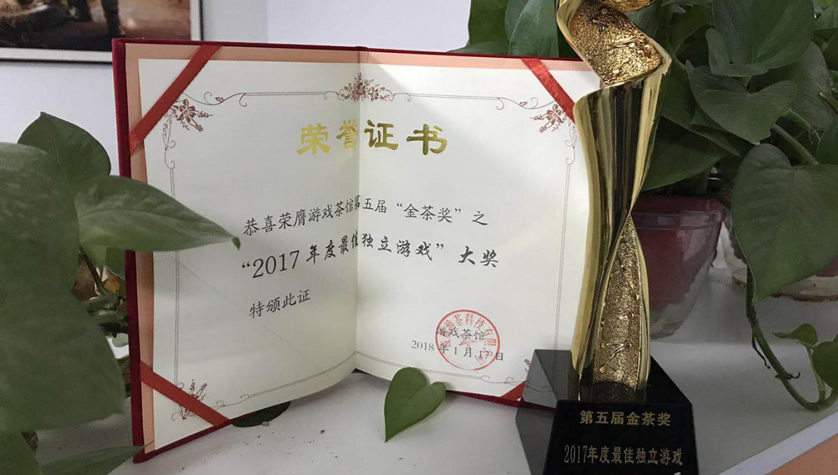 荣誉证书
恭喜荣膺游戏茶馆第五届“金茶奖”之
“2017年度最佳独立游戏”大奖
特颁此证
游戏茶馆
2018年1月17日
第五届金茶奖
2017年度最佳独立游戏